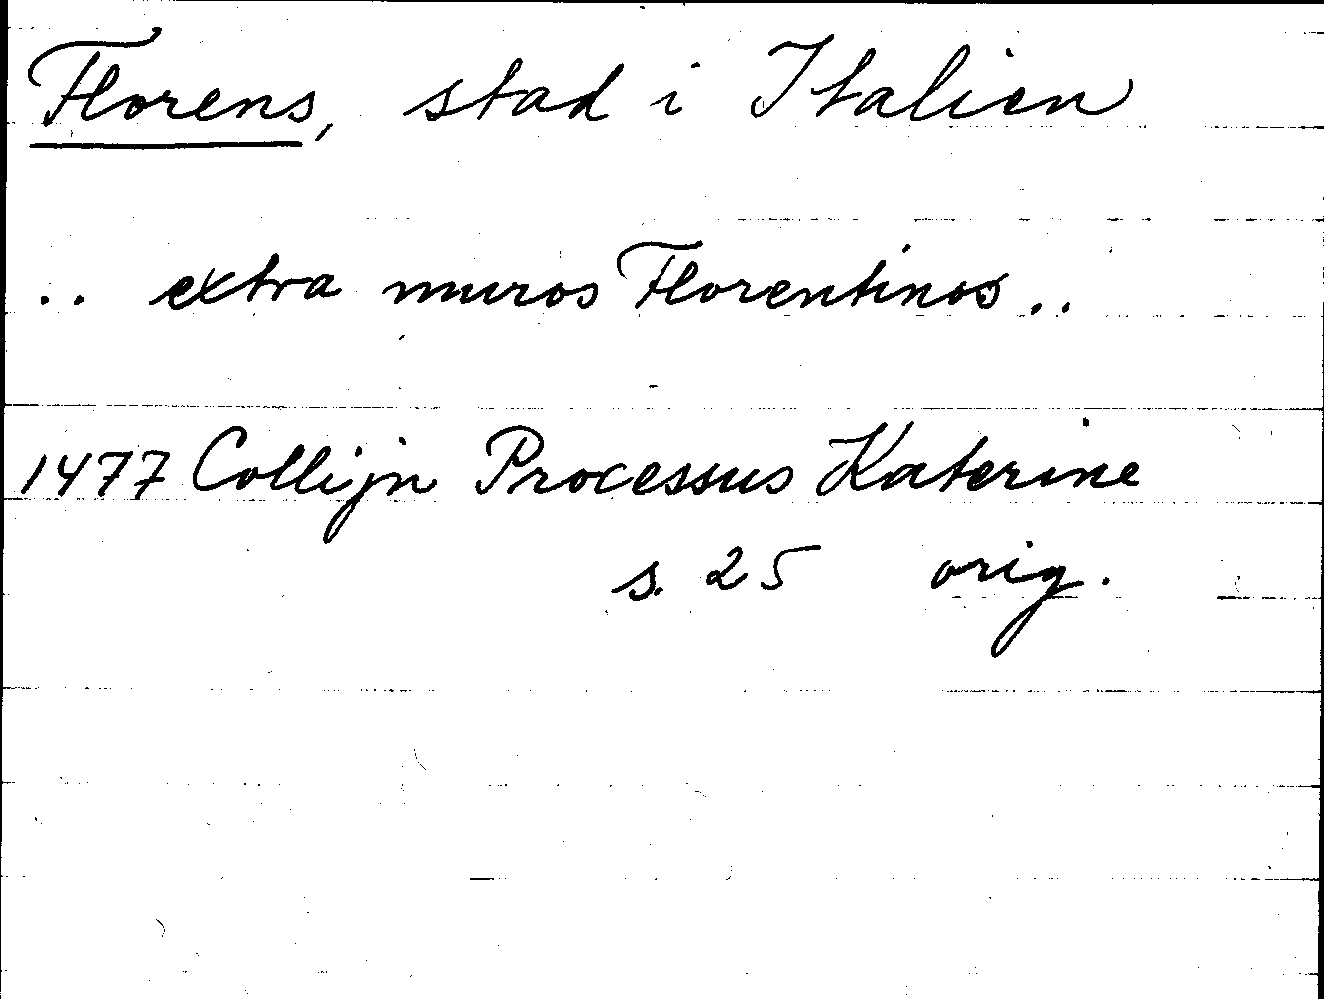 Florens, stad i Italien
.. extra muros Florentinos ..
1477 Collijn Processus Katerine
s. 25 orig.